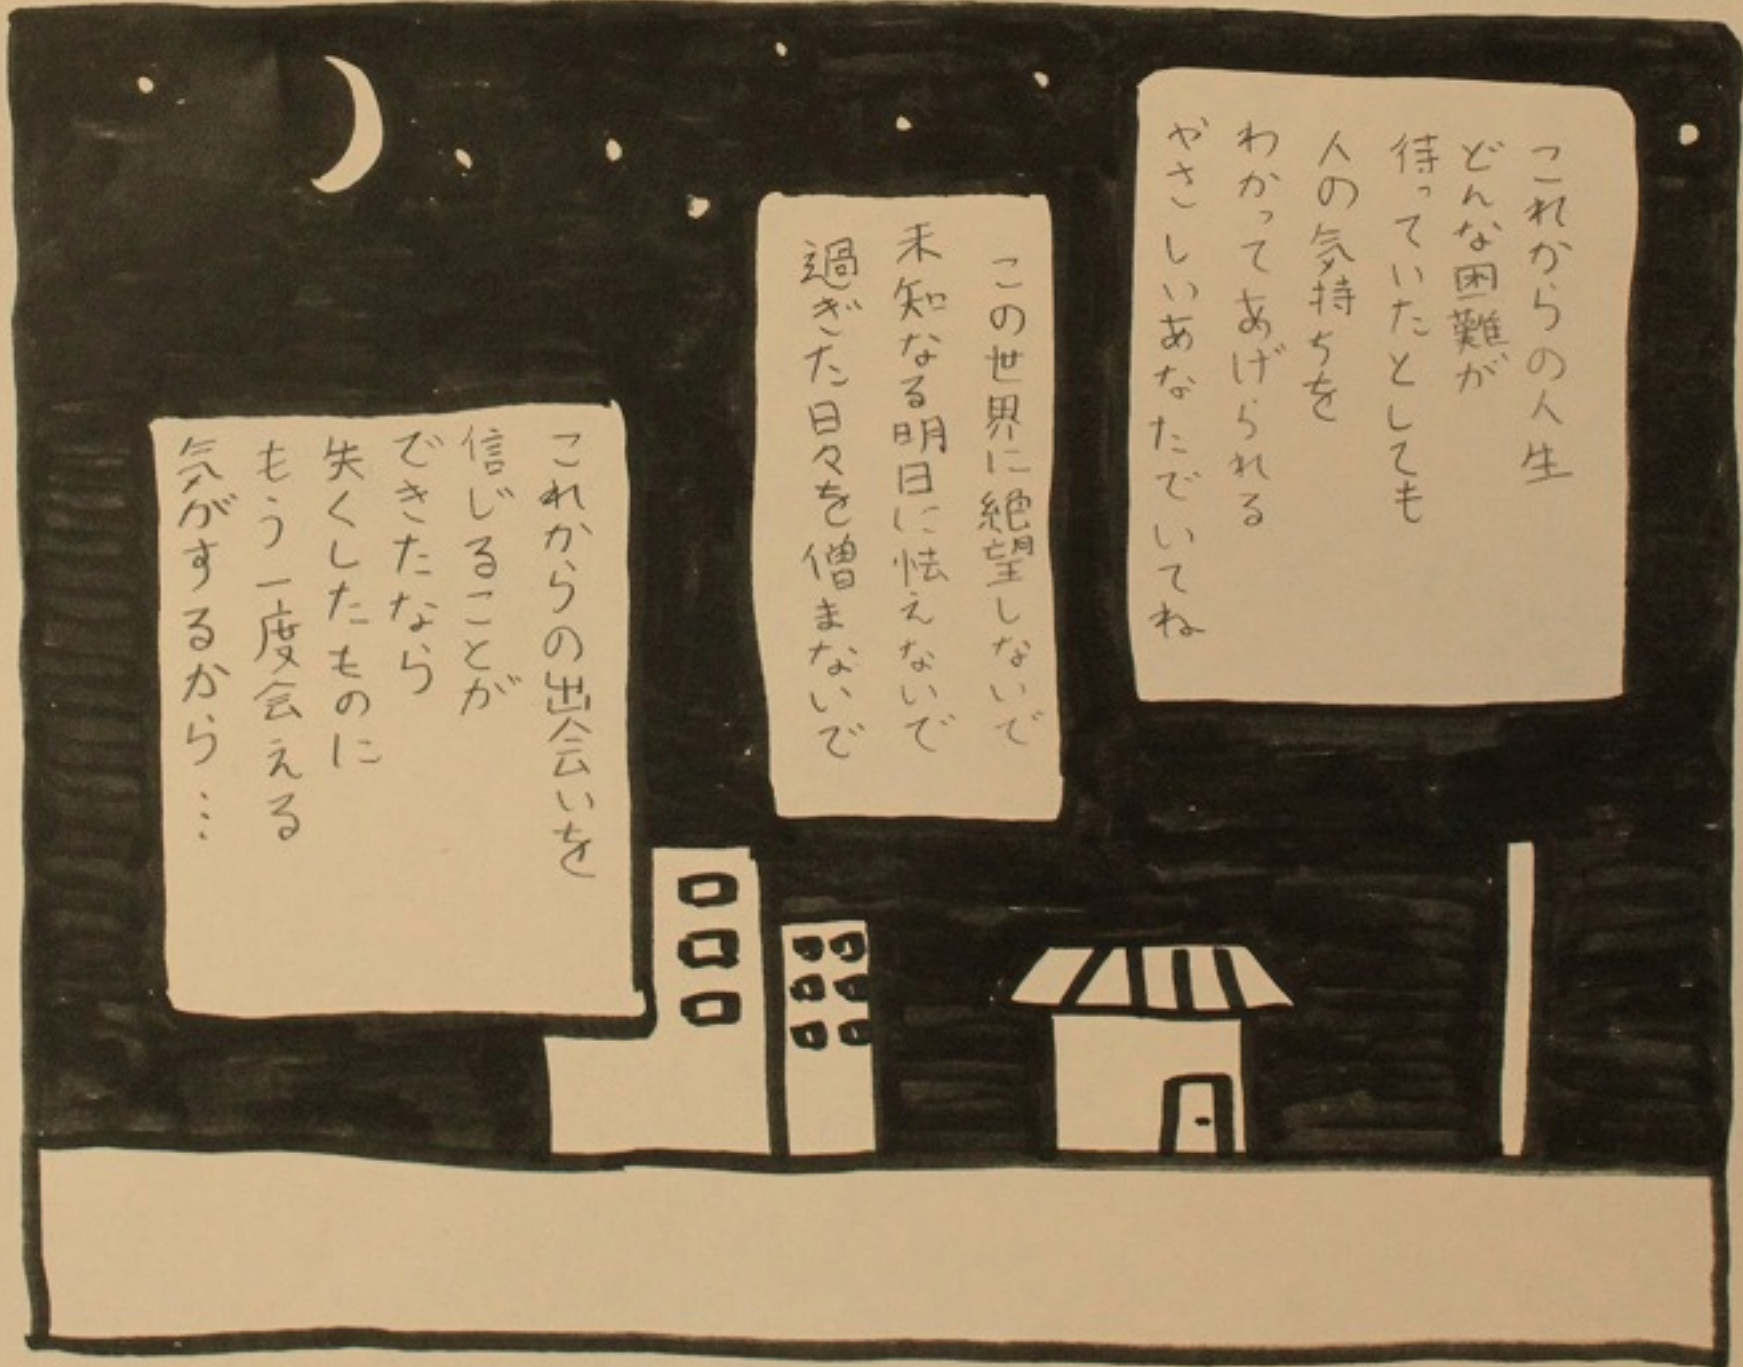 これからの人生
どんな困難が
待っていたとしても
人の気持ちを
わかってあげられる
やさしいあなたでいてね
この世界に絶望しないで
未知なる明日に怯えないで
過ぎた日々を憎まないで
これからの出会いを
信じることが
できたなら
失くしたものに
もう一度会える
気がするから…